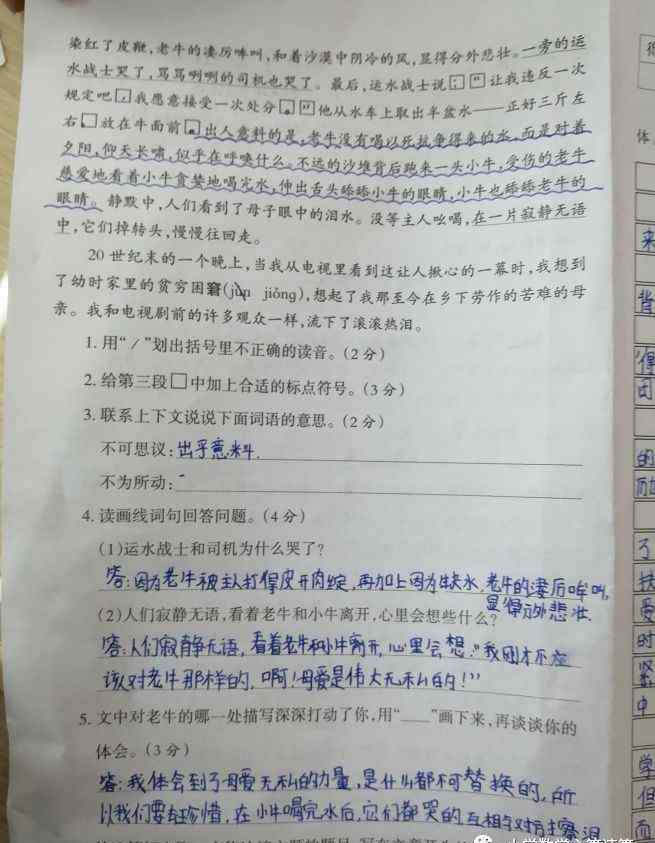 染红了皮鞭,老牛的凄厉哞叫,和着沙漠中阴冷的风,显得分外悲壮。一旁的运
水战士哭了,骂骂咧咧的司机也哭了。最后,运水战士说:“让我违反一次
规定吧,我愿意接受一次处分。”他从水车上取出半盆水——正好三斤左
右,放在牛面前。出人意料的是,老牛没有喝以死抗争得来的水,而是对着
夕阳,仰天长啸,似乎在呼唤什么。不远的沙堆背后跑来一头小牛,受伤的老牛
慈爱地看着小牛贪婪地喝完水,伸出舌头舔舔小牛的眼睛,小牛也舔舔老牛的
眼睛。静默中,人们看到了母子眼中的泪水。没等主人吆喝,在一片寂静无语
中,它们掉转头,慢慢往回走。
20世纪末的一个晚上,当我从电视里看到这让人揪心的一幕时,我想到
了幼时家里的贫穷困窘(jūn jiǒng),想起了我那至今在乡下劳作的苦难的母
亲。我和电视剧前的许多观众一样,流下了滚滚热泪。
1.用“/”划出括号里不正确的读音。(2分)
2.给第三段□中加上合适的标点符号。(3分)
3.联系上下文说说下面词语的意思。(2分)
不可思议:出乎意料.
不为所动:
4.读画线词句回答问题。(4分)
(1)运水战士和司机为什么哭了?
答:因为老牛被主人打得皮开肉绽,再加上因为缺水,老牛的凄厉哞叫,
显得分外悲壮.
(2)人们寂静无语,看着老牛和小牛离开,心里会想些什么?
答:人们寂静无语,看着老牛和小牛离开,心里会想:“我刚才不应
该对老牛那样的,啊!母爱是伟大无私的!”
5.文中对老牛的哪一处描写深深打动了你,用“___”画下来,再谈谈你的
体会。(3分)
答:我体会到了母爱无私的力量,是什么都不可替换的,所
以我们要去珍惜,在小牛喝完水后,它们都哭的互相与对方擦泪
体
来
背
得
团
的
了
扶
受
时
紧
中
学
但
而